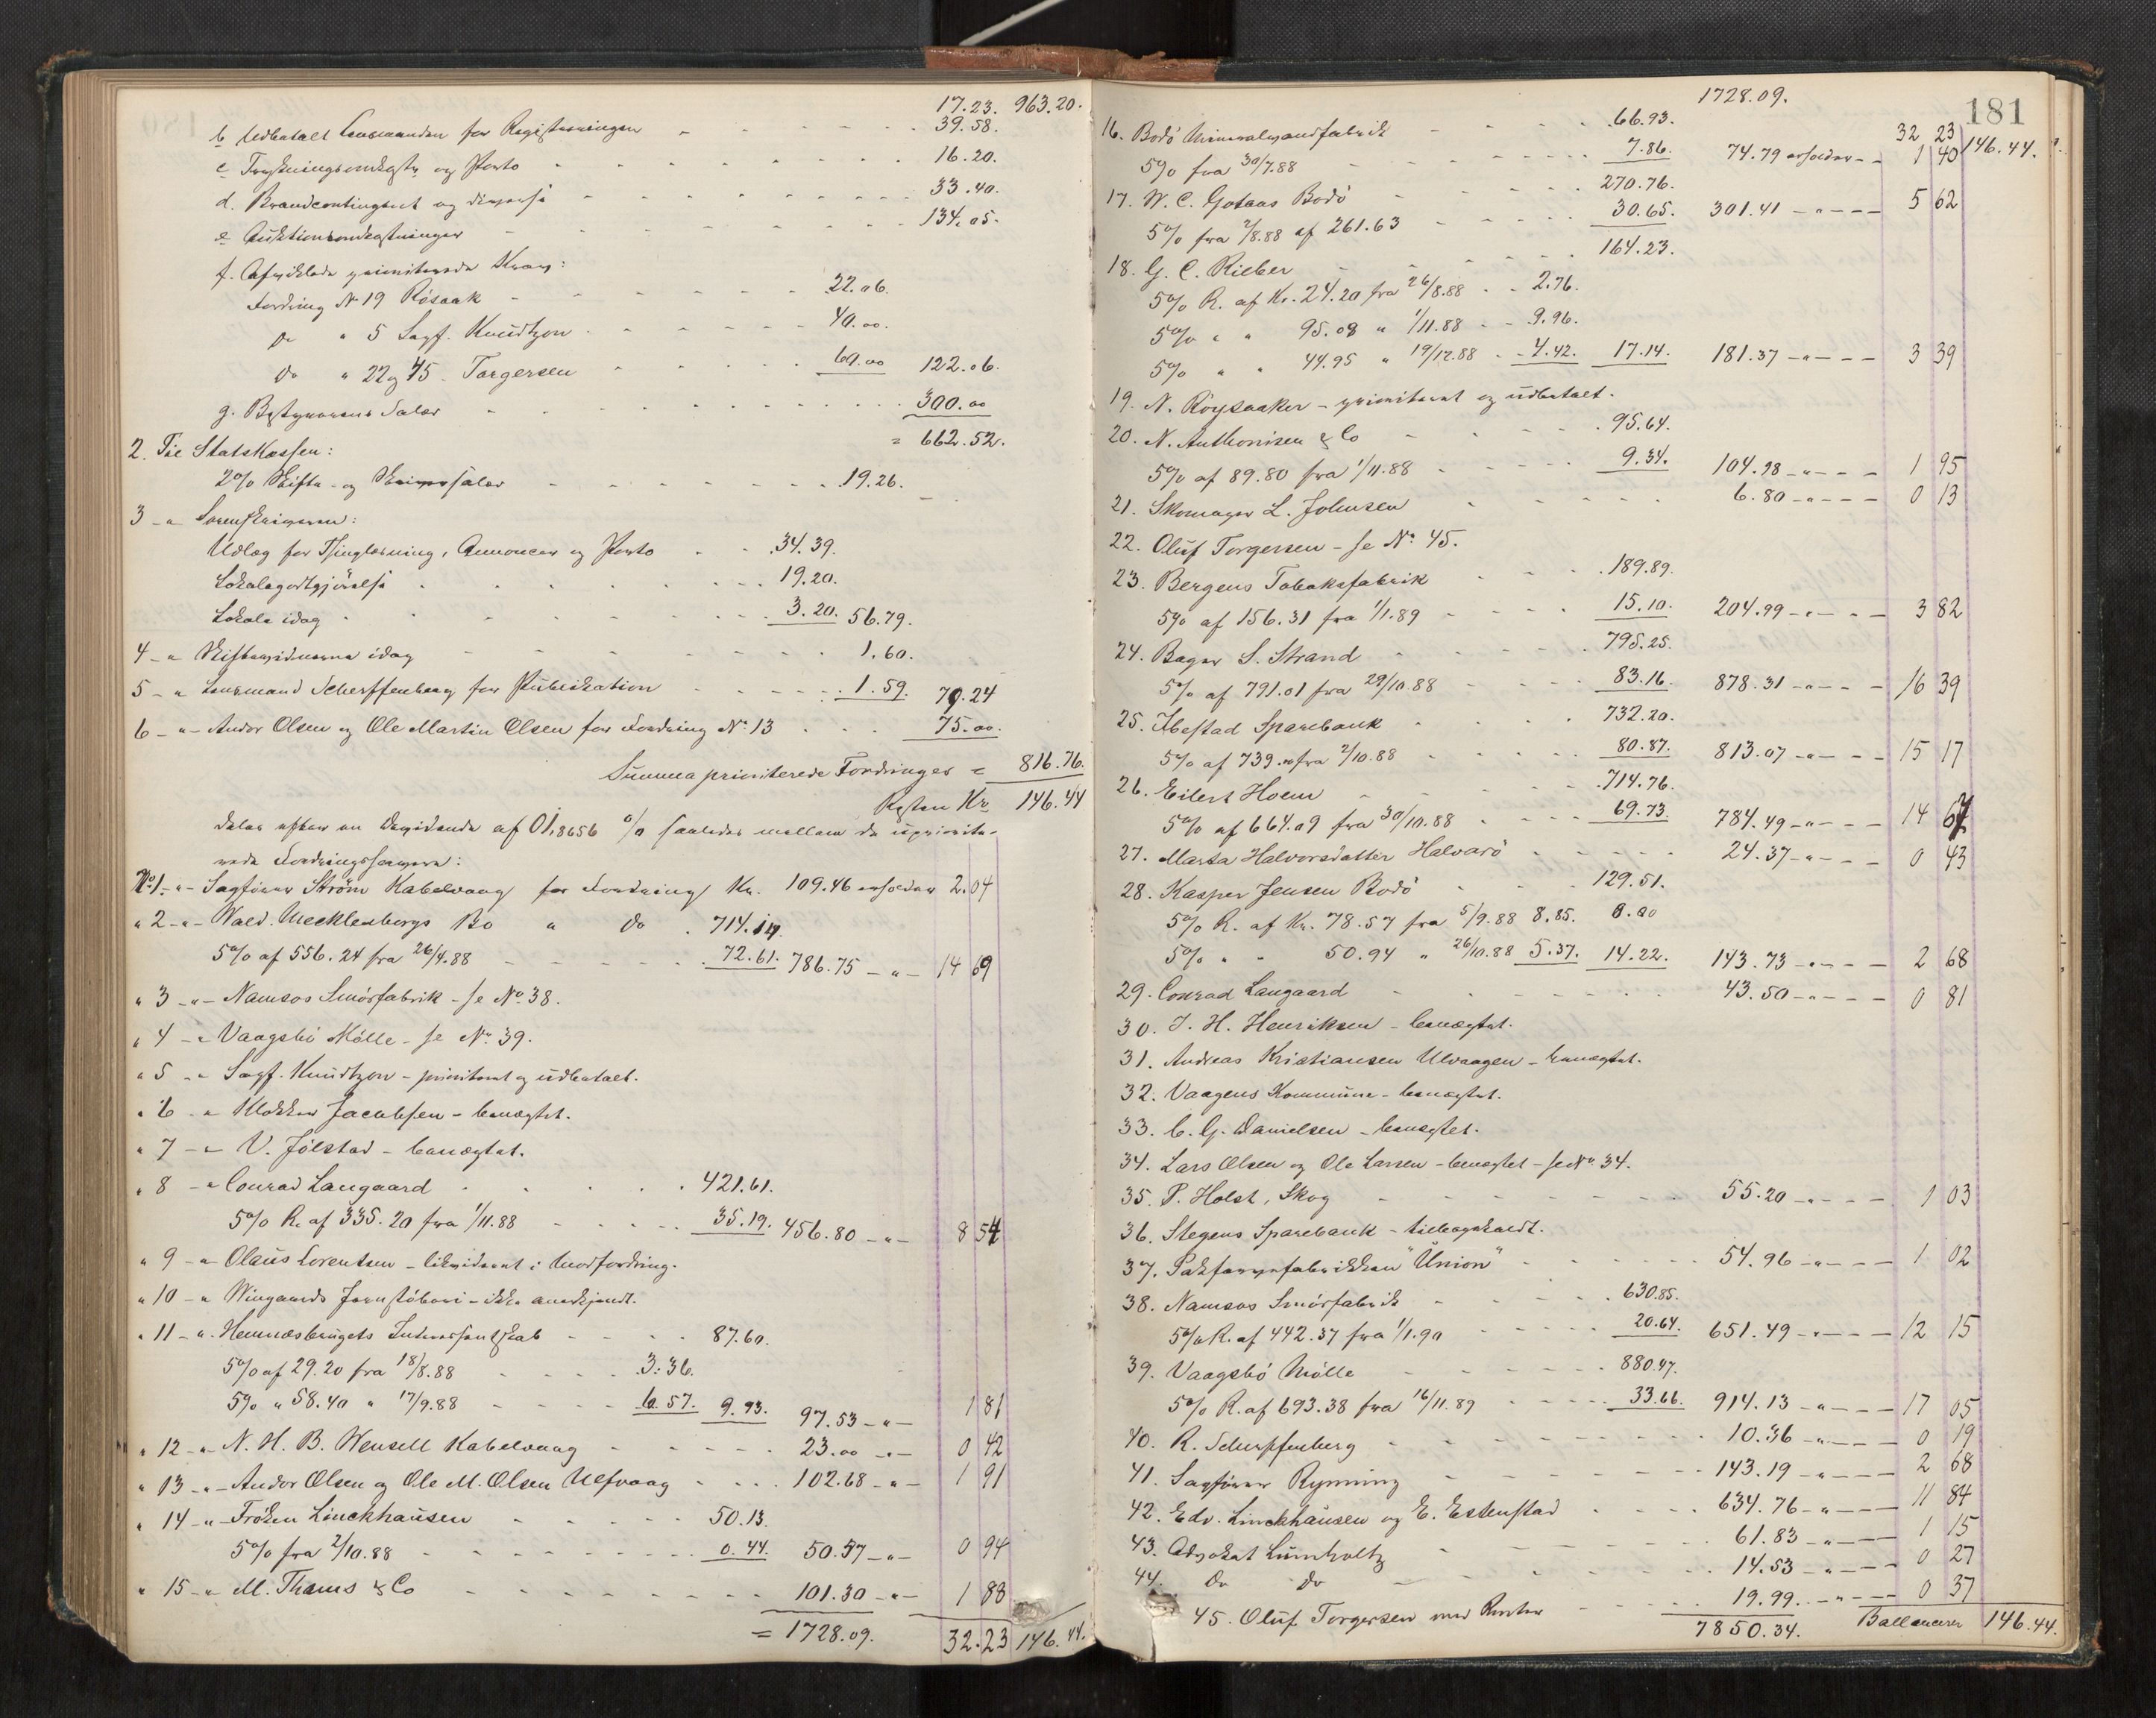 17.23. 963.20.
b Udbetalt Lensmanden for Registreringen - - - 39.58.
c Trykningsomkostn. og Porto - - - 16.20.
d. Brandcontingent og diverse - - - 33.40.
e Auktionsomkostninger - - - 134.05.
f. Afviklede prioriterede Krav:
Fordring No 19 Røsaak - - - 22.06.
Do " 5 Sagf. Knudtzon - - - 40.00.
Do " 22 og 45. Torgersen - - - 60.00 122.06.
g. Bestyrerens Salær - - - 300.00
= 662.52.
2. Til Statskassen:
2% Skifte- og Skriversalær - - - 19.26.
3 -"- Sorenskriveren:
Udlæg for Thinglæsning, Annoncer og Porto - - 34.39.
Lokalegodtgjörelse - - - 19.20.
Lokale idag - - - 3.20. 56.79.
4 -"- Skiftevidnerne idag - - - 1.60.
5 -"- Lensmand Scherffenberg for Publikation - - - 1.59. 79.24
6 -"- Andor Olsen og Ole Martin Olsen for Fordring No. 13 . . . 75.00.
Summa prioriterede Fordringer = 816.76.
Resten Kr. 146.44
deles efter en Dividende af 01,8656 % saaledes mellem de uprioriterede
Fordringshavere:
No. 1 -"- Sagförer Ström Kabelvaag for Fordring Kr. 109.46 erholder 2.04
" 2 -"- Wald. Mecklenburgs Bo " Do . 714.14.
5% af 556.24 fra 26/4.88 - - - 72.61. 786.75 -"- 14 69
" 3 -"- Namsos Smörfabrik - se No. 38.
" 4 -"- Vaagsbö Mölle - se No. 39.
" 5 -"- Sagf. Knudtzon - prioriteret og udbetalt.
" 6 -"- Klokker Jacobsen - benægtet.
" 7 -"- V. Jölstad - benægtet.
" 8 -"- Conrad Langaard . . . . 421.61.
5% R. af 335.20 fra 1/11.88 - - - 35.19. 456.80 -"- 8 54
" 9 -"- Olaus Lorentsen - likvideret i Modfordring.
" 10 -"- Wingaards Jernstöberi - ikke anerkjendt.
" 11 -"- Hemnæsbergets Interessentskab - - - 87.60.
5% af 29.20 fra 18/8.88 - - - 3.36.
5% " 58.40 " 17/9.88 - - - 6.57. 9.93. 97.53 -"- 1 81
" 12 -"- N. H. B. Wensell Kabelvaag - - - 23.00 -"- 0 42
" 13 -"- Andor Olsen og Ole M. Olsen Ulfvaag - - - 102.68 -"- 1 91
" 14 -"- Fröken Linckhausen - - - 50.13.
5% fra 2/10.88 - - - 0.44. 50.57 -"- 0 94
" 15 -"- M. Thams & Co - - - 101.30 -"- 1 88
= 1728.09. 32.23 146.44.
181
1728.09. 32 23 146.44.
16. Bodö Mineralvandfabrik - - - 66.93.
5% fra 30/7.88 - - - 7.86. 74.79 erholder - - 1 40
17. W. C. Gotaas Bodö - - - 270.76.
5% fra 2/8.88 af 261.63 - - - 30.65. 301.41 -"- - - 5 62
18. G. C. Rieber - - - 164.23.
5% R. af Kr. 24.20 fra 26/8.88 - - 2.76.
5% " " 95.08 " 1/11.88 - - 9.96.
5% " " 44.95 " 19/12.88 - - 4.42. 17.14. 181.37 -"- - - 3 39
19. N. Röysaaker - prioriteret og udbetalt.
20. N. Anthonisen & Co - - - 95.64.
5% af 89.80 fra 1/11.88 - - - 9.34. 104.98 -"- - - 1 95
21. Skomager L. Johnsen - - - 6.80 -"- - - 0 13
22. Oluf Torgersen - se No. 45.
23. Bergens Tobaksfabrik - - - 189.89.
5% af 156.31 fra 1/1.89 - - - 15.10. 204.99 -"- - - 3 82
24. Bager S. Strand - - - 795.25.
5% af 791.01 fra 29/10.88 - - - 83.16. 878.31 -"- - - 16 39
25. Ibestad Sparebank - - - 732.20.
5% af 739.00 fra 2/10.88 - - - 80.87. 813.07 -"- - - 15 17
26. Eilert Hoem - - - 714.76.
5% af 664.09 fra 30/10.88 - - - 69.73. 784.49 -"- - - 14 64
27. Marta Halvorsdatter Halvarö - - - 24.37 -"- - - 0 43
28. Kasper Jensen Bodö - - - 129.51.
5% R. af Kr. 78.57 fra 5/9.88 8.85. 0.00
5% " - 50.94 " 26/10.88 5.37. 14.22. 143.73 -"- - - 2 68
29. Conrad Langaard - - - 43.50 -"- - - 0 81
30. J. H. Henriksen - benægtet.
31. Andreas Kristiansen Ulvaagen - benægtet.
32. Vaagens Kommune - benægtet.
33. C. G. Danielsen - benægtet.
34. Lars Olsen og Ole Larsen - benægtet - se No. 34.
35. P. Holst, Skog - - - 55.20 -"- - - 1 03
36. Stegens Sparebank - tilbagekaldt.
37. Sæbefabrikken "Union" - - - 54.96 -"- - - 1 02
38. Namsos Smörfabrik - - - 630.85.
5% R. af 442.37 fra 1/1.90 - - - 20.64. 651.49 -"- - - 12 15
39. Vaagsbö Mölle - - - 880.47.
5% R. af 693.38 fra 16/11.89 - - - 33.66. 914.13 -"- - - 17 05
40. R. Scherffenberg - - - 10.36 -"- - - 0 19
41. Sagförer Rynning - - - 143.19 -"- - - 2 68
42. Edv. Linckhausen og E. Estenstad - - - 634.76 -"- - - 11 84
43. Advokat Lumholtz - - - 61.83 -"- - - 1 15
44. Do Do - - - 14.53 -"- - - 0 27
45. Oluf Torgersen med Renter - - - 19.99. -"- - - 0 37
7850.34. Ballancerer 146.44.